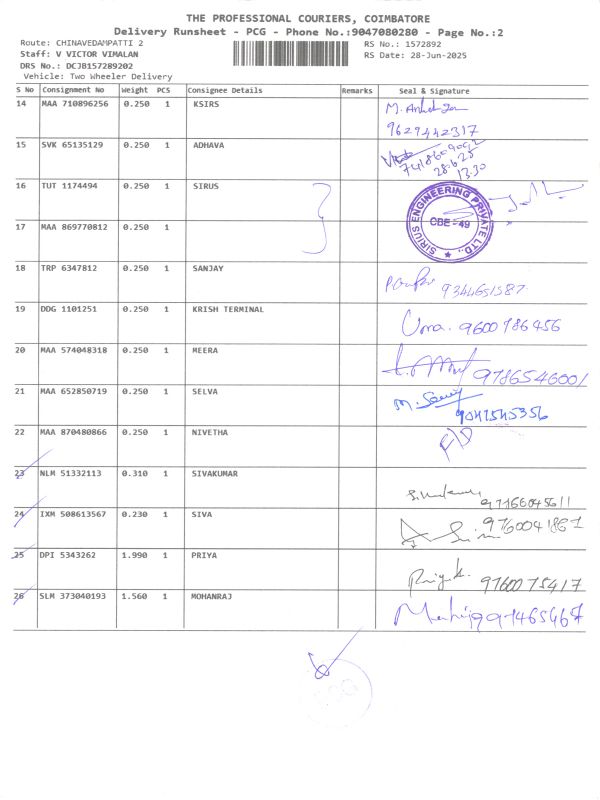 THE PROFESSIONAL COURIERS, COIMBATORE
Delivery Runsheet - PCG - Phone No.:9047080280 - Page No.:2
Route: CHINAVEDAMPATTI 2
RS No.: 1572892
Staff: V VICTOR VIMALAN
RS Date: 28-Jun-2025
DRS No.: DCJB157289202
Vehicle: Two Wheeler Delivery
S No Consignment No Weight PCS Consignee Details Remarks Seal & Signature
14 MAA 710896256 0.250 1 KSIRS
9629442317
15 SVK 65135129 0.250 1 ADHAVA
7418609092
28.6.25
13.30
16 TUT 1174494 0.250 1 SIRUS
SIRIUS ENGINEERING PRIVATE LTD.,
CBE-49
17 MAA 869770812 0.250 1
18 TRP 6347812 0.250 1 SANJAY
9344651587
19 DDG 1101251 0.250 1 KRISH TERMINAL
Uma. 9600786456
20 MAA 574048318 0.250 1 MEERA
9786546001
21 MAA 652850719 0.250 1 SELVA
9047545356
22 MAA 870480866 0.250 1 NIVETHA
23 NLM 51332113 0.310 1 SIVAKUMAR
24 IXM 508613567 0.230 1 SIVA
9760041867
25 DPI 5343262 1.990 1 PRIYA
9760075417
26 SLM 373040193 1.560 1 MOHANRAJ